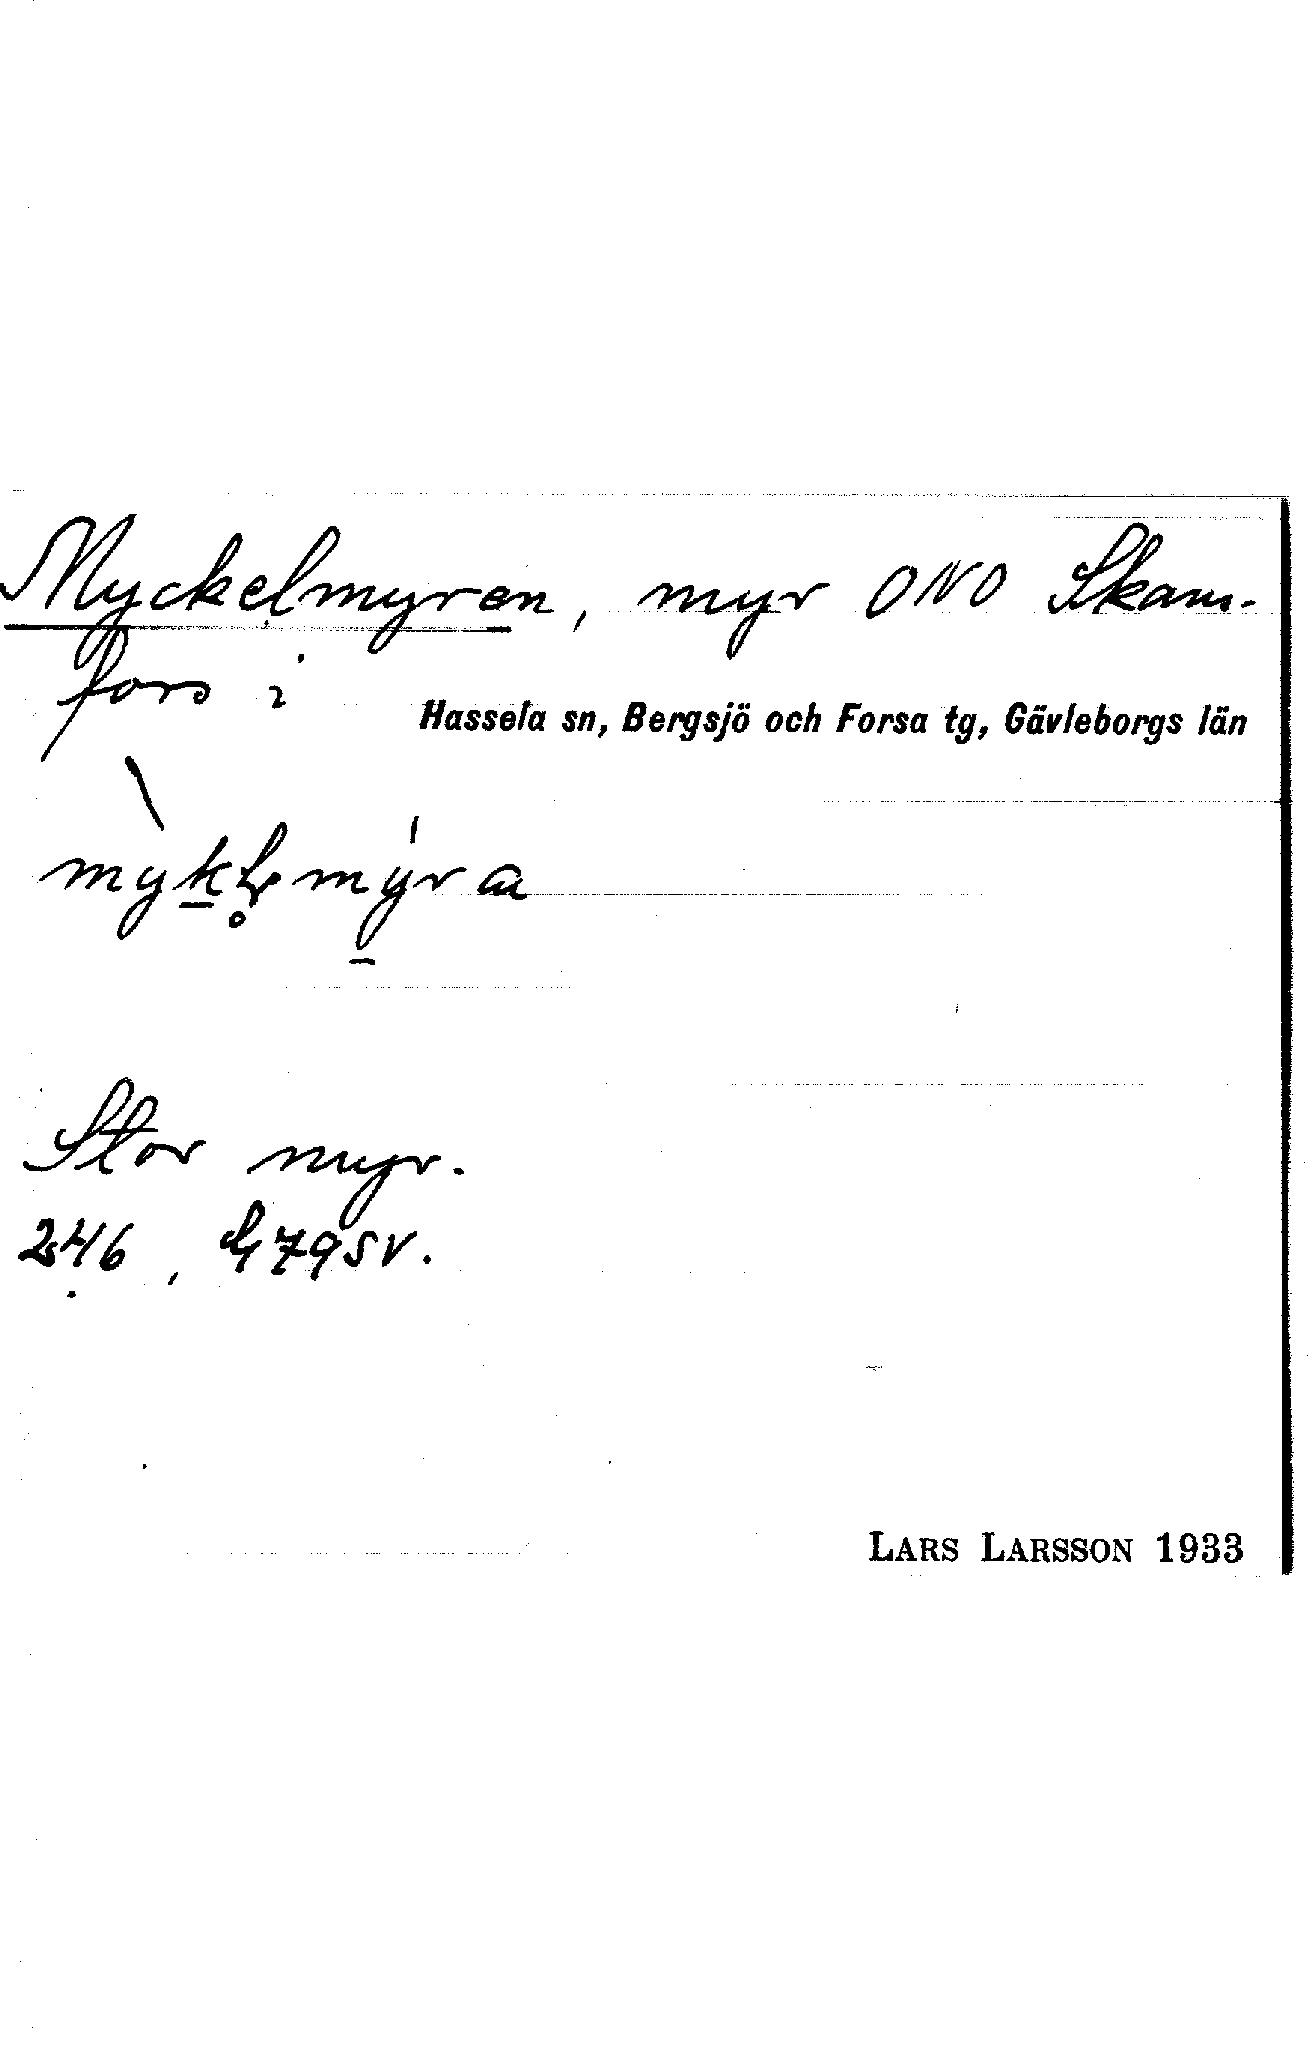 Myckelmyren, myr ONO Skam-
fors i
Hassela sn, Bergsjö och Forsa tg, Gävleborgs län
Stor myr.
LARS LARSSON 1933